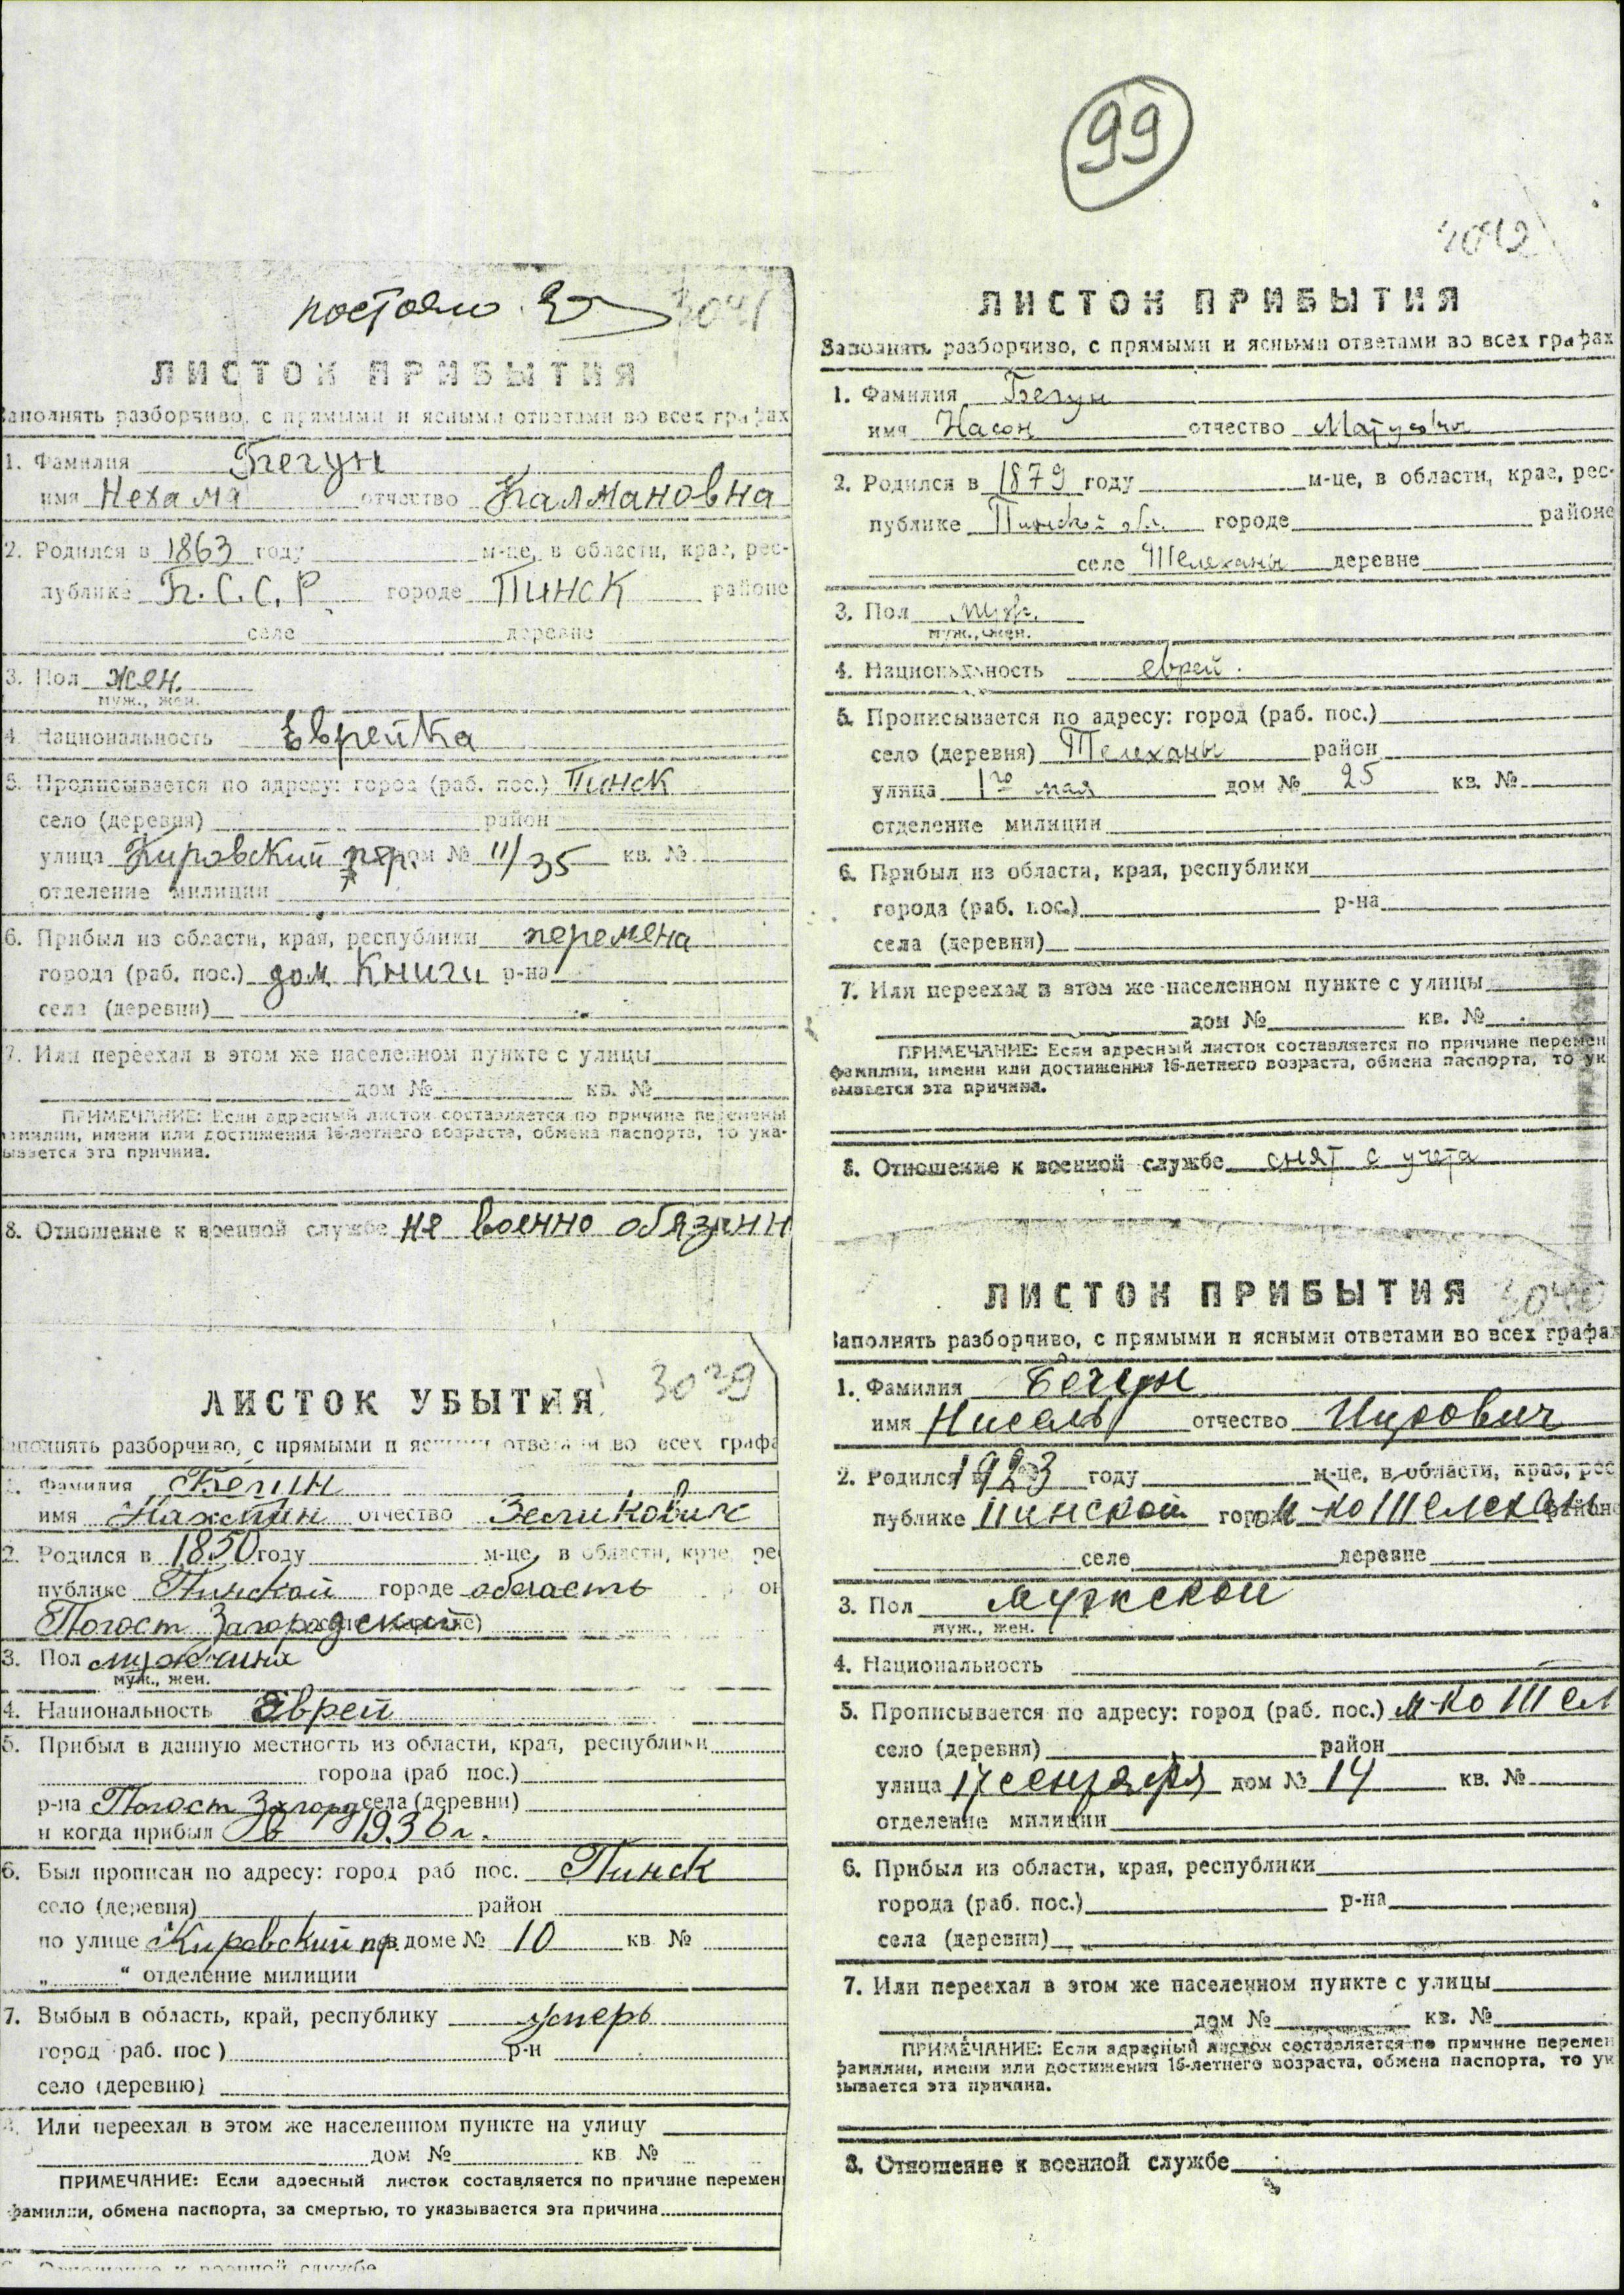 99
постоянно
3041
ЛИСТОК ПРИБЫТИЯ
Заполнять разборчиво, с прямыми и ясными ответами во всех графах
1. Фамилия Бегун
имя Нехама отчество Калмановна
2. Родился в 1863 году м-це, в области, крае, рес-
публике Б.С.С.Р. городе Пинск районе
селе деревне
3. Пол жен.
муж., жен.
4. Национальность Еврейка
5. Прописывается по адресу: город (раб. пос.) Пинск
село (деревня) район
улица Кировский пер. дом № 11/35 кв. №
отделение милиции
6. Прибыл из области, края, республики перемена
города (раб. пос.) дом книги р-на
села (деревни)
7. Или переехал в этом же населенном пункте с улицы
дом № кв. №
ПРИМЕЧАНИЕ: Если адресный листок составляется по причине перемены
фамилии, имени или достижения 16-летнего возраста, обмена паспорта, то ука-
зывается эта причина.
8. Отношение к военной службе не военно обязанн
3042
ЛИСТОК ПРИБЫТИЯ
Заполнять разборчиво, с прямыми и ясными ответами во всех графах
1. Фамилия Бегун
имя Насон отчество
2. Родился в 1879 году м-це, в области, крае, рес-
публике Пинской обл. городе районе
селе Телеханы деревне
3. Пол муж.
муж., жен.
4. Национальность еврей.
5. Прописывается по адресу: город (раб. пос.)
село (деревня) Телеханы район
улица 1го мая дом № 25 кв. №
отделение милиции
6. Прибыл из области, края, республики
города (раб. пос.) р-на
села (деревни)
7. Или переехал в этом же населенном пункте с улицы
дом № кв. №
ПРИМЕЧАНИЕ: Если адресный листок составляется по причине перемен
фамилии, имени или достижения 16-летнего возраста, обмена паспорта, то ук
зывается эта причина.
8. Отношение к военной службе снят с учета
3039
ЛИСТОК УБЫТИЯ
Заполнять разборчиво, с прямыми и ясными ответами во всех графа
1. Фамилия Бегун
имя отчество Зеликович
2. Родился в 1850 году м-це, в области, крае, ре
публике Пинской городе область
Погост Загородский
3. Пол мужчина
муж., жен.
4. Национальность Еврей
5. Прибыл в данную местность из области, края, республики
города (раб пос.)
р-на Погост Загород села (деревни)
и когда прибыл в 1936 г.
6. Был прописан по адресу: город раб пос. Пинск
село (деревня) район
по улице Кировский пр. в доме № 10 кв №
„ “ отделение милиции
7. Выбыл в область, край, республику умерь
город раб. пос) р-н
село (деревню)
Или переехал в этом же населенном пункте на улицу
дом № кв №
ПРИМЕЧАНИЕ: Если адресный листок составляется по причине перемен
фамилии, обмена паспорта, за смертью, то указывается эта причина
Отношение к военной службе
3040
ЛИСТОК ПРИБЫТИЯ
Заполнять разборчиво, с прямыми и ясными ответами во всех графах
1. Фамилия Бегун
имя Нисель отчество
2. Родился в 1923 году м-це, в области, крае, рес
публике Пинской городе м-ко Телеханы районе
селе деревне
3. Пол мужской
муж., жен.
4. Национальность
5. Прописывается по адресу: город (раб. пос.) м-ко Тел
село (деревня) район
улица 17 сентября дом № 14 кв. №
отделение милиции
6. Прибыл из области, края, республики
города (раб. пос.) р-на
села (деревни)
7. Или переехал в этом же населенном пункте с улицы
дом № кв. №
ПРИМЕЧАНИЕ: Если адресный листок составляется по причине перемен
фамилии, имени или достижения 16-летнего возраста, обмена паспорта, то ук
зывается эта причина.
8. Отношение к военной службе